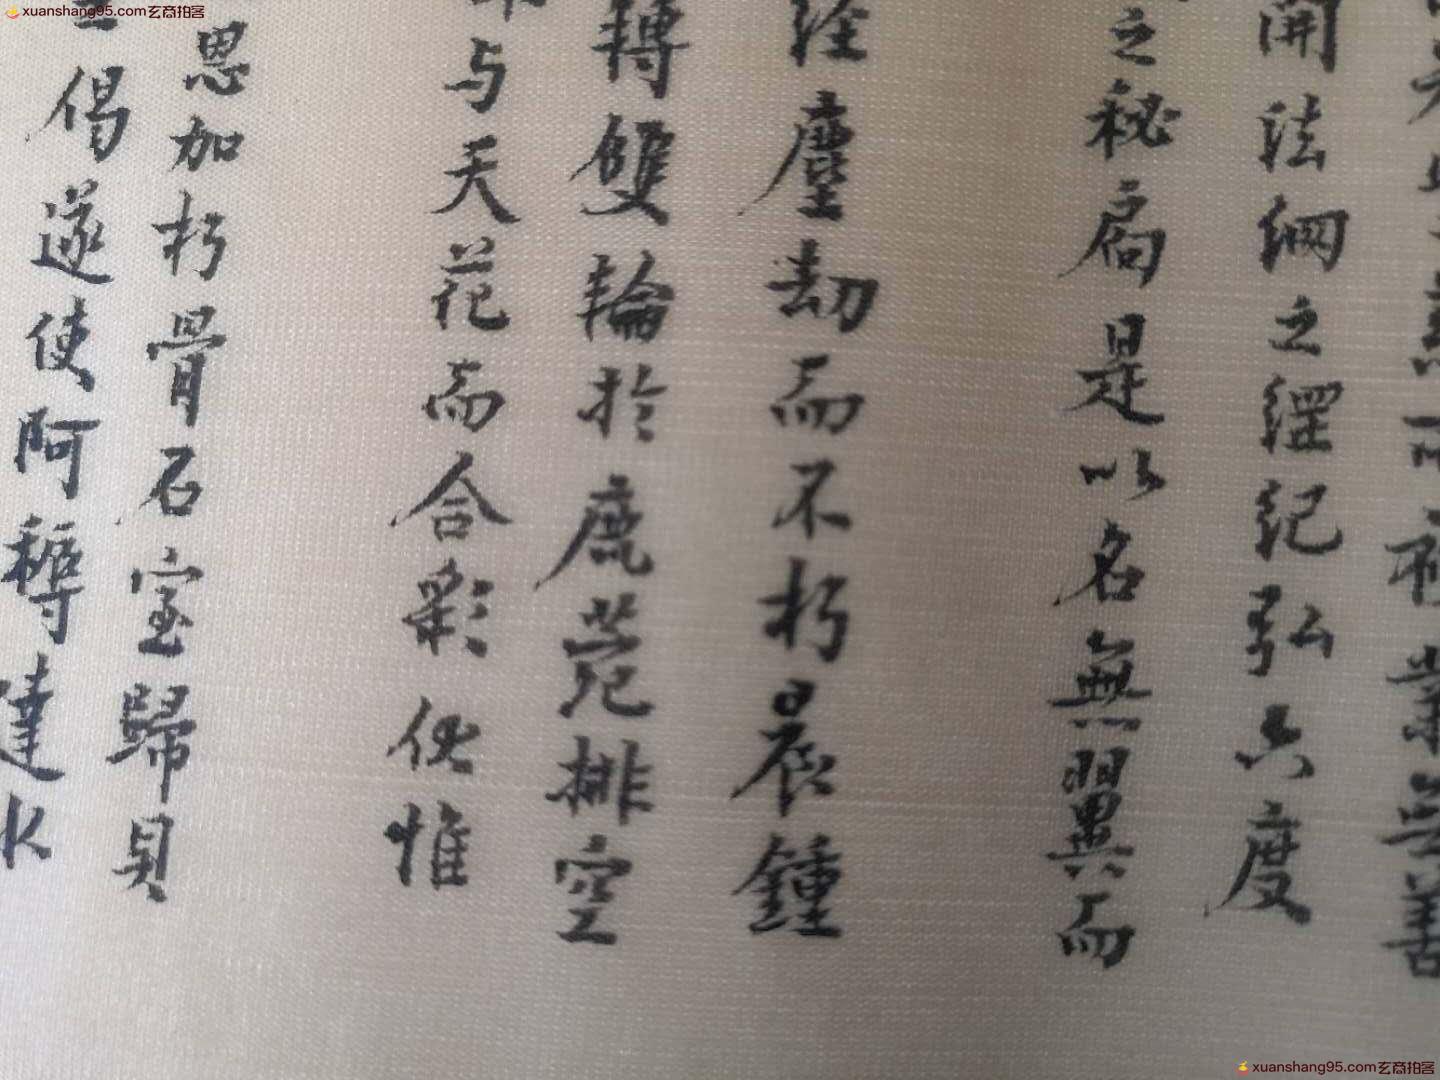 xuanshang95.com玄商拍客
業無善
開法網之綱紀弘六度
之秘扃是以名無翼而
經塵劫而不朽晨鍾
轉雙輪於鹿苑排空
与天花而合彩伏惟
恩加朽骨石室歸貝
偈遂使阿耨達水
xuanshang95.com玄商拍客